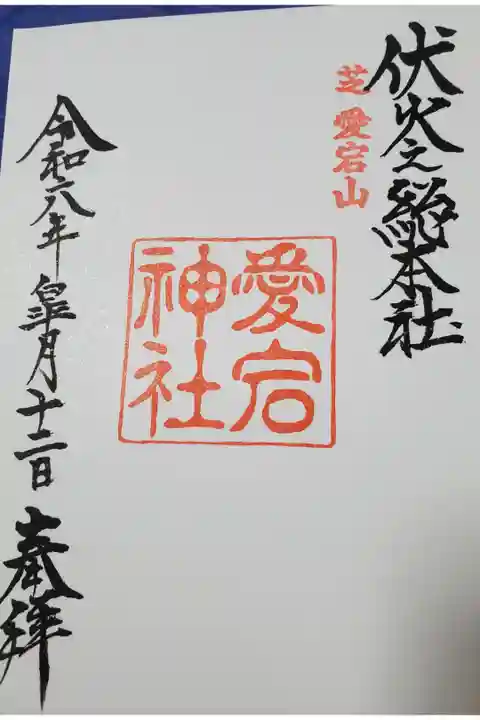 伏火之総本社
芝愛宕山
愛宕
神社
令和六年皐月十二日奉拝